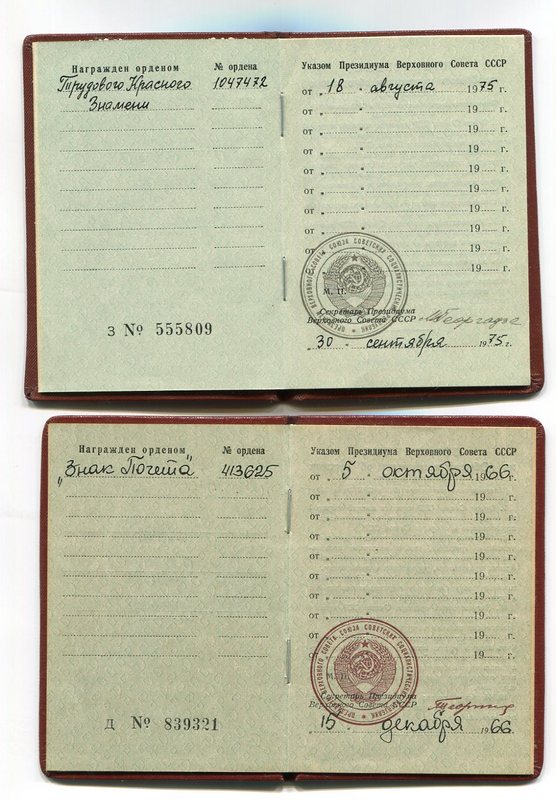 Награжден орденом № ордена
Трудового Красного 1047472
Знамени
З № 555809
Указом Президиума Верховного Совета СССР
от „ 18 " августа 1975 г.
от „ " 19 г.
от „ " 19 г.
от „ " 19 г.
от „ " 19 г.
от „ " 19 г.
от „ " 19 г.
от „ " 19 г.
от „ " 19 г.
„ " 19 г.
М. П.
Секретарь Президиума
Верховного Совета СССР Георгадзе
„ 30 " сентября 1975 г.
Награжден орденом № ордена
„Знак Почета" 413625
Д № 839321
Указом Президиума Верховного Совета СССР
от „ 5 " октября 1966 г.
от „ " 19 г.
от „ " 19 г.
от „ " 19 г.
от „ " 19 г.
от „ " 19 г.
от „ " 19 г.
от „ " 19 г.
от „ " 19 г.
от „ " 19 г.
М. П.
Секретарь Президиума
Верховного Совета СССР
„ 15 " декабря 1966 г.